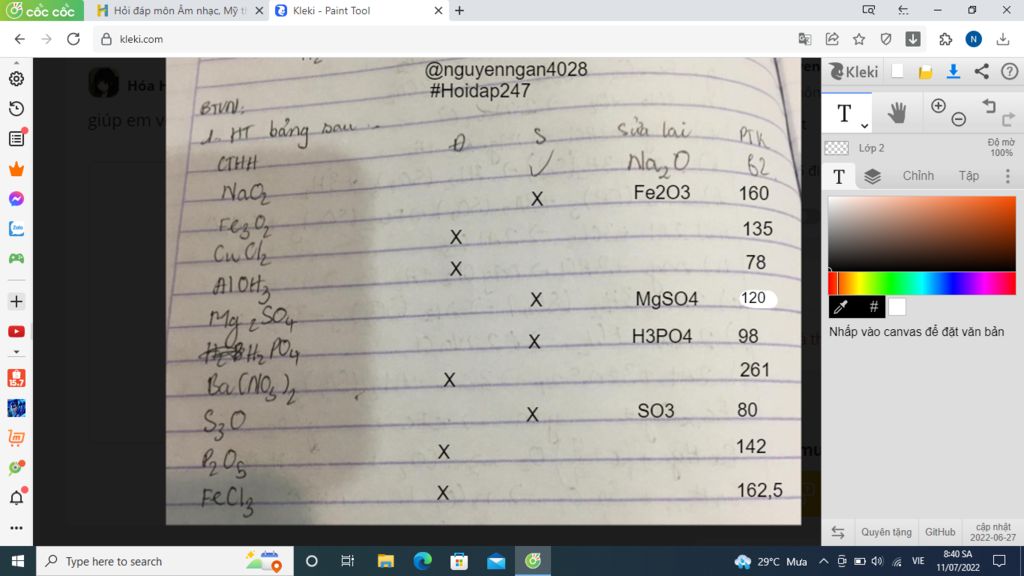 CỐC CỐC
Hỏi đáp môn Âm nhạc, Mỹ th
Kleki - Paint Tool
kleki.com
N
Hóa H
giúp em v
@nguyenngan4028
#Hoidap247
BTVN:
1. HT bảng sau
CTHH Đ S sửa lại PTK
NaO2 ✓ Na2O 62
Fe3O2 X Fe2O3 160
CuCl2 X 135
AlOH3 X 78
Mg2SO4 X MgSO4 120
H2PO4 X H3PO4 98
Ba(NO3)2 X 261
S3O X SO3 80
P2O5 X 142
FeCl3 X 162,5
Kleki
T
Lớp 2
Độ mờ
100%
T Chỉnh Tập
#
Nhấp vào canvas để đặt văn bản
Zalo
15.7
Quyên tặng GitHub cập nhật
2022-06-27
Type here to search
29°C Mưa
VIE
8:40 SA
11/07/2022